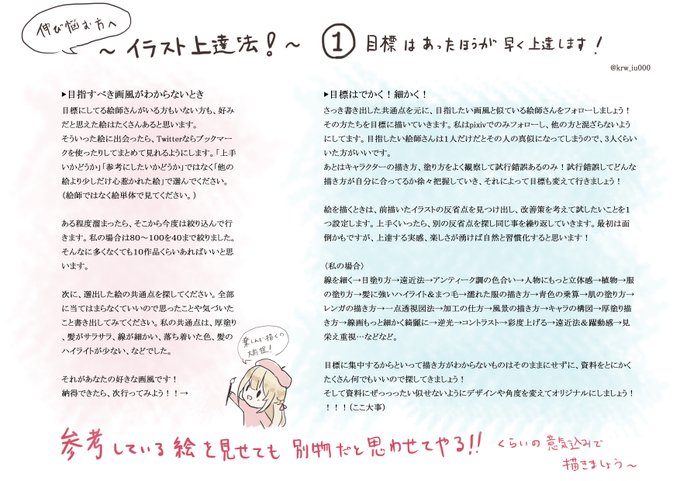 伸び悩む方へ
～イラスト上達法！～
① 目標はあったほうが早く上達します！
@krw_iu000
▶目指すべき画風がわからないとき
目標にしてる絵師さんがいる方もいない方も、好み
だと思えた絵はたくさんあると思います。
そういった絵に出会ったら、Twitterならブックマー
クを使ったりしてまとめて見れるようにします。「上手
いかどうか」「参考にしたいかどうか」ではなく「他の
絵より少しだけ心惹かれた絵」で選んでください。
（絵師ではなく絵単体で見てください。）
ある程度溜まったら、そこから今度は絞り込んで行
きます。私の場合は80～100を40まで絞りました。
そんなに多くなくても10作品くらいあればいいと思
います。
次に、選出した絵の共通点を探してください。全部
に当てはまらなくていいので思ったことや気づいた
こと書き出してみてください。私の共通点は、厚塗り、
髪がサラサラ、線が細かい、落ち着いた色、髪の
ハイライトが少ない、などでした。
それがあなたの好きな画風です！
納得できたら、次行ってみよう！！→
楽しんで描くの
大前提！
▶目標はでかく！細かく！
さっき書き出した共通点を元に、目指したい画風と似ている絵師さんをフォローしましょう！
その方たちを目標に描いていきます。私はpixivでのみフォローし、他の方と混ざらないよう
にしてます。目指したい絵師さんは1人だけだとその人の真似になってしまうので、3人くらい
いた方がいいです。
あとはキャラクターの描き方、塗り方をよく観察して試行錯誤あるのみ！試行錯誤してどんな
描き方が自分に合ってるか徐々把握していき、それによって目標も変えて行きましょう！
絵を描くときは、前描いたイラストの反省点を見つけ出し、改善策を考えて試したいことを1
つ設定します。上手くいったら、別の反省点を探し同じ事を繰り返していきます。最初は面
倒かもですが、上達する実感、楽しさが湧けば自然と習慣化すると思います！
（私の場合）
線を細く→目塗り方→遠近法→アンティーク調の色合い→人物にもっと立体感→植物→服
の塗り方→髪に強いハイライト＆まつ毛→濡れた服の描き方→青色の乗算→肌の塗り方→
レンガの描き方→一点透視図法→加工の仕方→風景の描き方→キャラの構図→厚塗り描
き方→線画もっと細かく綺麗に→逆光→コントラスト→彩度上げる→遠近法＆躍動感→見
栄え重視…などなど。
目標に集中するからといって描き方がわからないものはそのままにせずに、資料をとにかく
たくさん何でもいいので探してきましょう！
そして資料にぜっっったい似せないようにデザインや角度を変えてオリジナルにしましょう！
！！！（ここ大事）
参考している絵を見せても別物だと思わせてやる!! くらいの意気込みで
描きましょう～